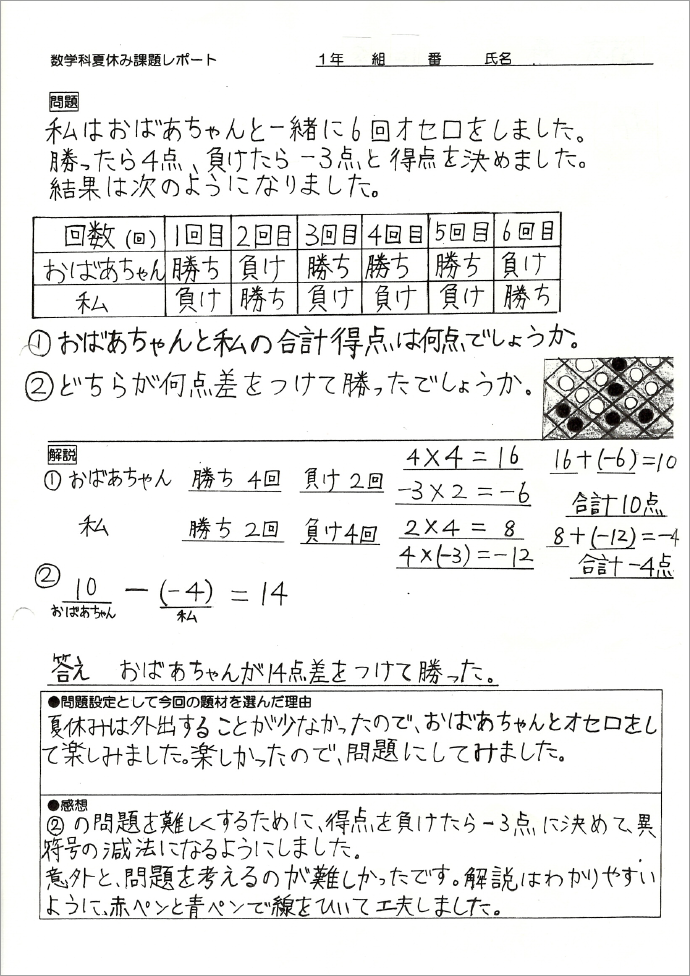 数学科夏休み課題レポート 1年 組 番 氏名
問題
私はおばあちゃんと一緒に6回オセロをしました。
勝ったら4点、負けたら-3点と得点を決めました。
結果は次のようになりました。
回数(回) 1回目 2回目 3回目 4回目 5回目 6回目
おばあちゃん 勝ち 負け 勝ち 勝ち 勝ち 負け
私 負け 勝ち 負け 負け 負け 勝ち
①おばあちゃんと私の合計得点は何点でしょうか。
②どちらが何点差をつけて勝ったでしょうか。
解説
①おばあちゃん 勝ち4回 負け2回 4×4=16 16+(-6)=10
-3×2=-6 合計10点
私 勝ち2回 負け4回 2×4=8 8+(-12)=-4
4×(-3)=-12 合計-4点
② 10 - (-4) = 14
おばあちゃん 私
答え おばあちゃんが14点差をつけて勝った。
●問題設定として今回の題材を選んだ理由
夏休みは外出することが少なかったので、おばあちゃんとオセロをし
て楽しみました。楽しかったので、問題にしてみました。
●感想
②の問題を難しくするために、得点を負けたら-3点に決めて、異
符号の減法になるようにしました。
意外と、問題を考えるのが難しかったです。解説はわかりやすい
ように、赤ペンと青ペンで線をひいて工夫しました。